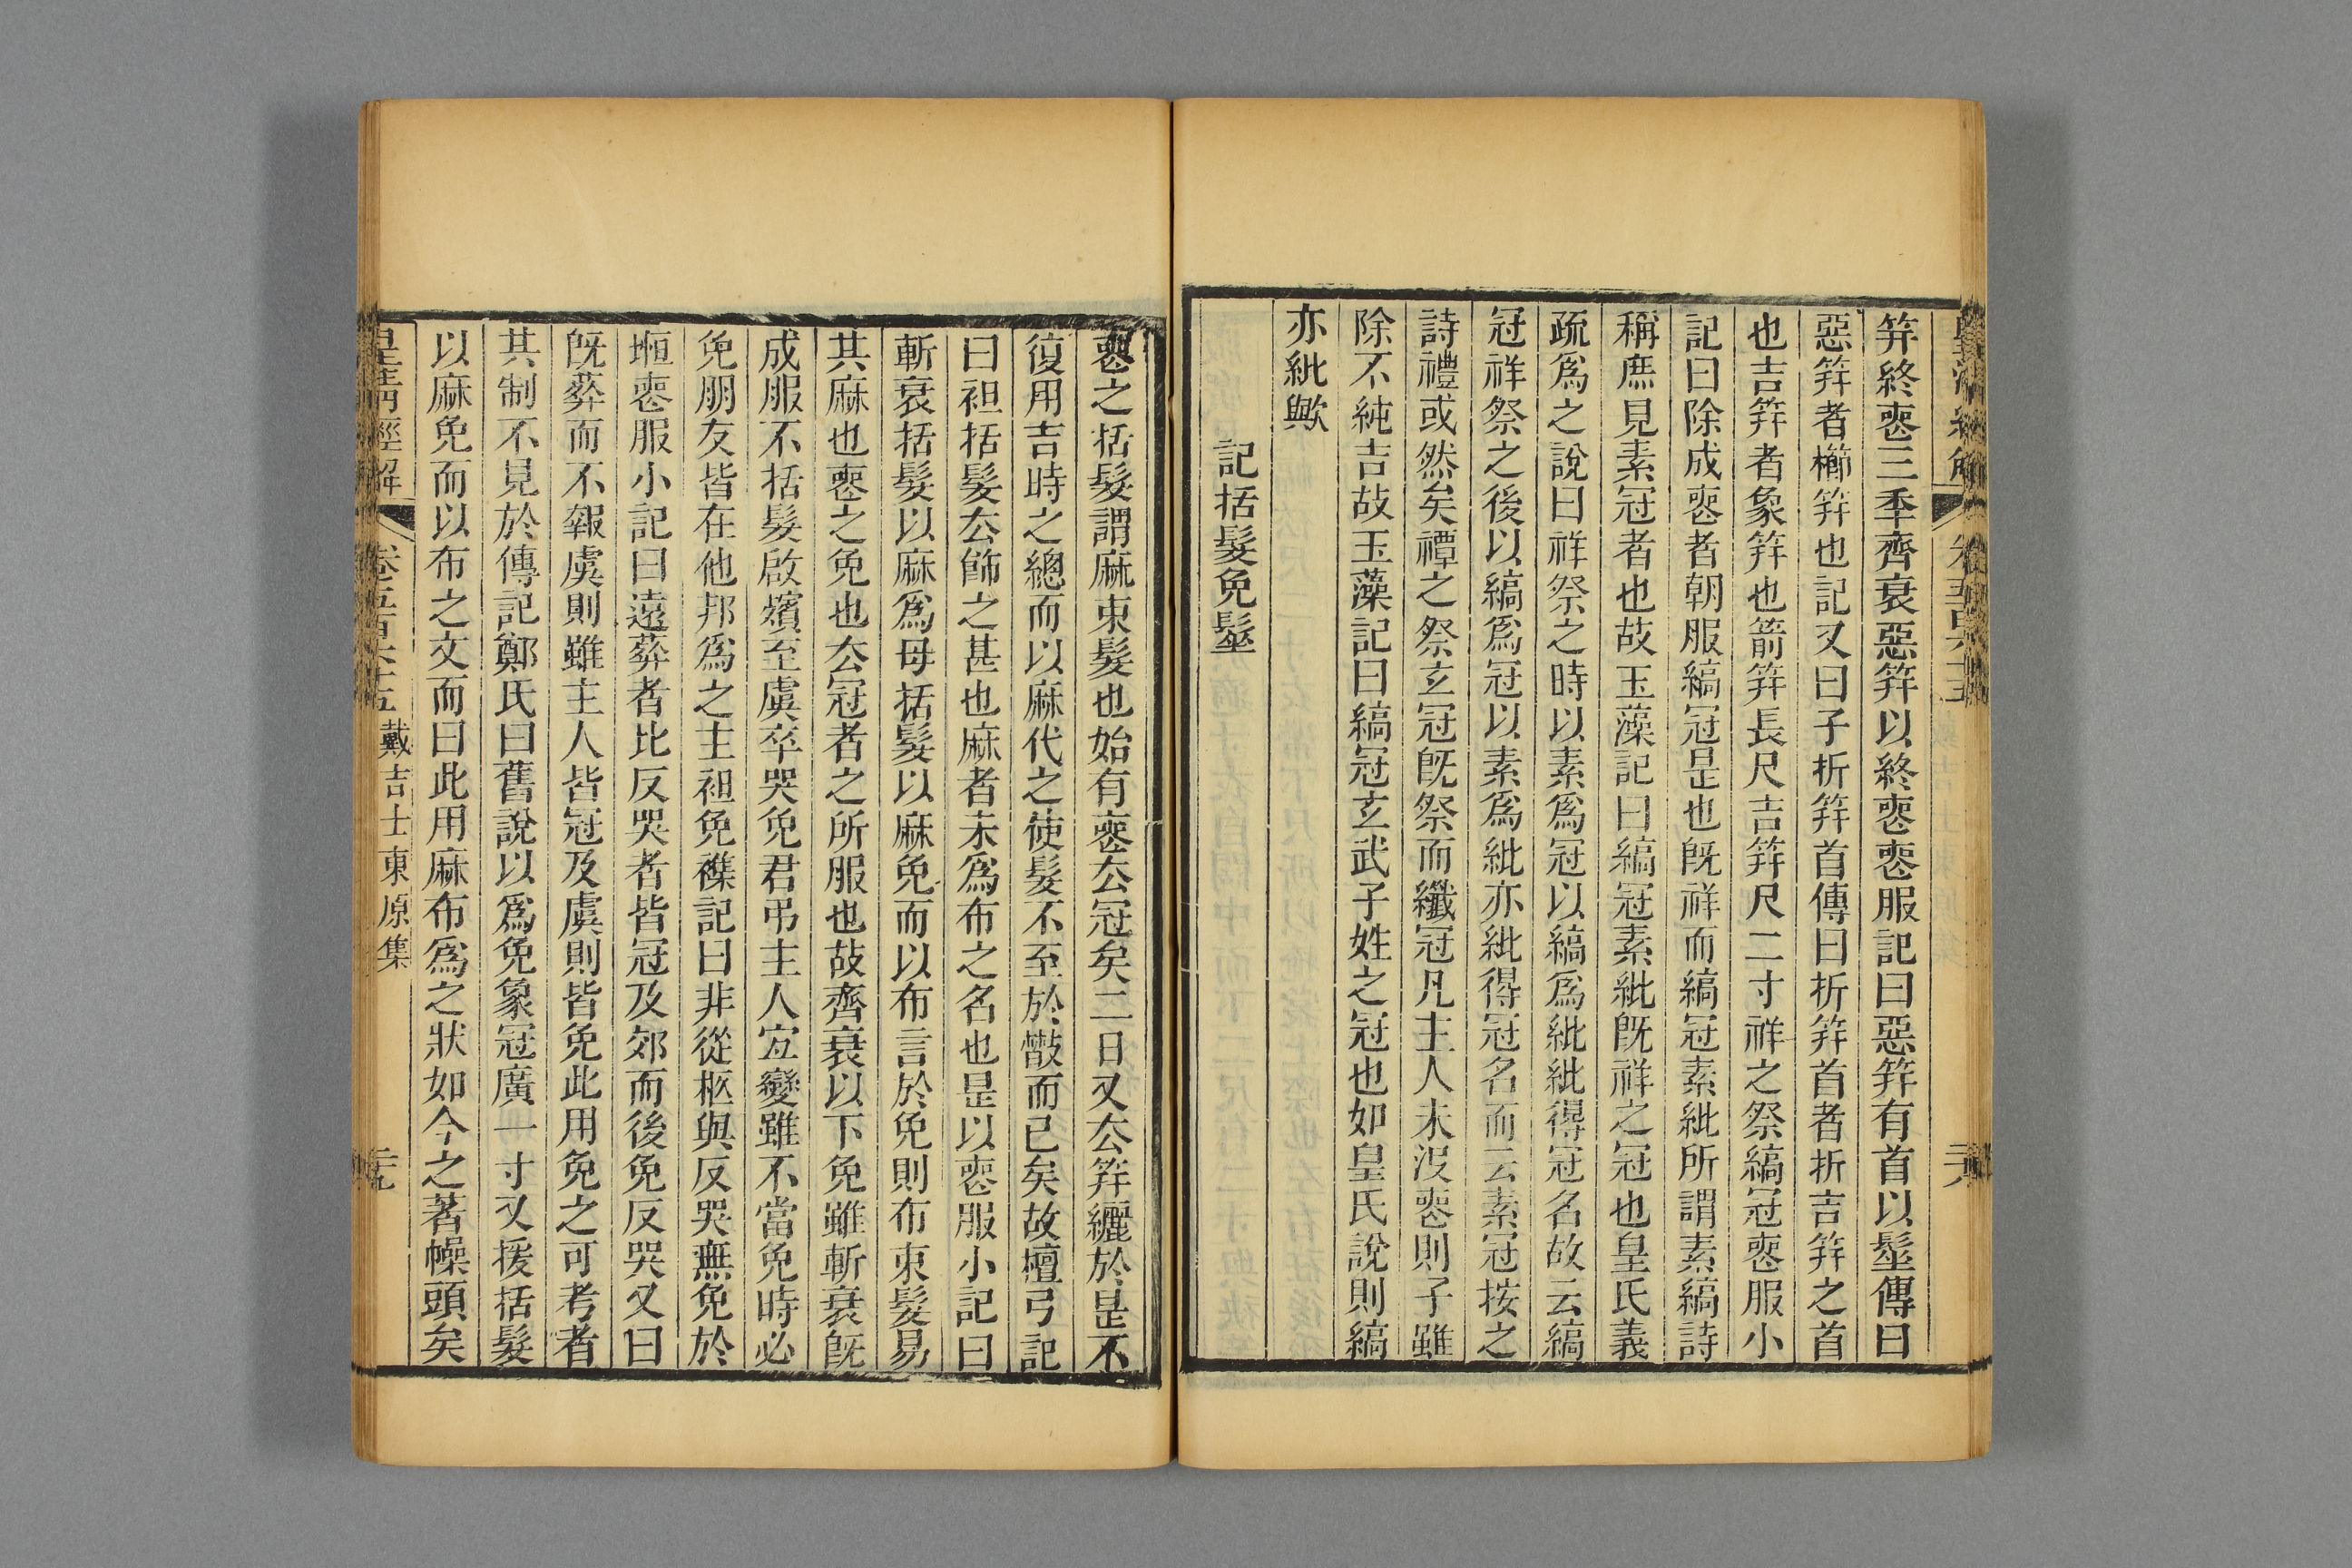 笄終喪三秊齊衰惡笄以終喪喪服記曰惡笄有首以髽傳曰
惡笄者櫛笄也記又曰子折笄首傳曰折笄首者折吉笄之首
也吉笄者象笄也箭笄長尺吉笄尺二寸祥之祭縞冠喪服小
記曰除成喪者朝服縞冠是也旣祥而縞冠素紕所謂素縞詩
稱庶見素冠者也故玉藻記曰縞冠素紕旣祥之冠也皇氏義
疏爲之說曰祥祭之時以素爲冠以縞爲紕紕得冠名故云縞
冠祥祭之後以縞爲冠以素爲紕亦紕得冠名而云素冠按之
詩禮或然矣禫之祭玄冠旣祭而纖冠凡主人未沒喪則子雖
除不純吉故玉藻記曰縞冠玄武子姓之冠也如皇氏說則縞
亦紕歟
記括髮免髽
喪之括髮謂麻束髮也始有喪厺冠矣二日又厺笄纚於是不
復用吉時之總而以麻代之使髮不至於鬠而已矣故壇弓記
曰袒括髮厺飾之甚也麻者未爲布之名也是以喪服小記曰
斬衰括髮以麻爲母括髮以麻免而以布言於免則布束髮易
其麻也喪之免也厺冠者之所服也故齊衰以下免雖斬衰旣
成服不括髮啟殯至虞卒哭免君弔主人宐變雖不當免時必
免朋友皆在他邦爲之主袒免襍記曰非從柩與反哭無免於
堩喪服小記曰遠葬者比反哭者皆冠及郊而後免反哭又曰
旣葬而不報虞則雖主人皆冠及虞則皆免此用免之可考者
其制不見於傳記鄭氏曰舊說以爲免象冠廣一寸又援括髮
以麻免而以布之文而曰此用麻布爲之狀如今之著幓頭矣
皇淸經解 卷五百六十五 戴吉士東原集 二十九